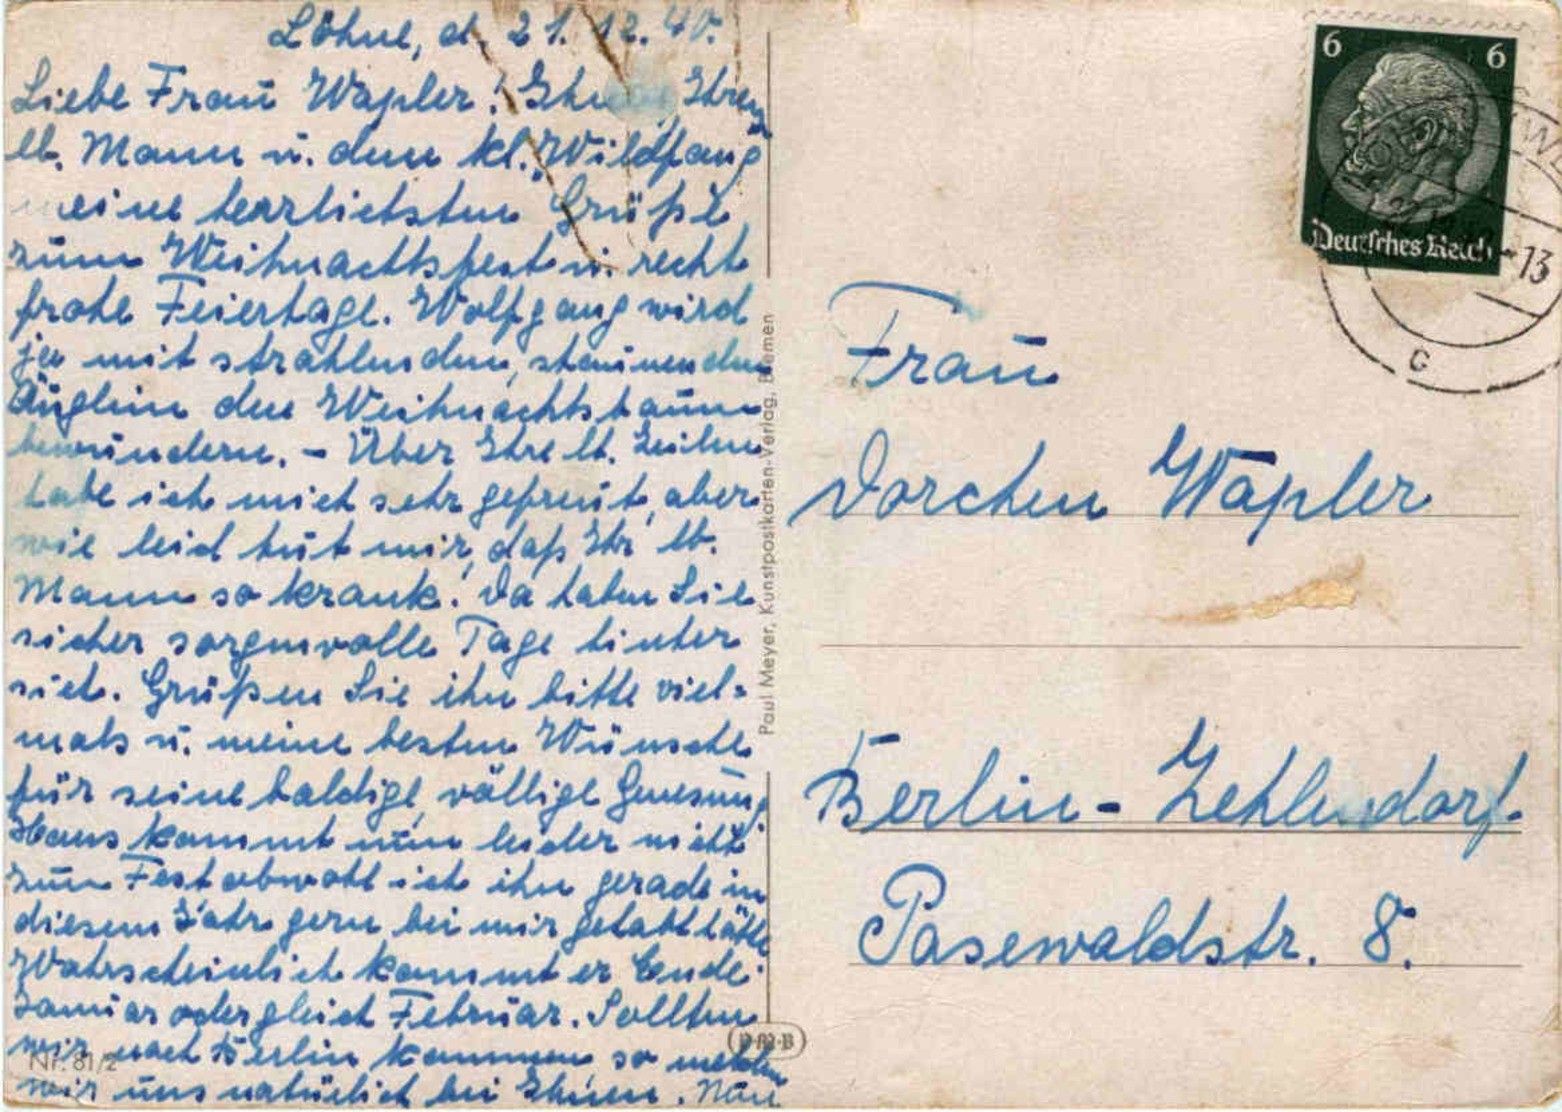 Löhne, d. 21. 12. 40.
Liebe Frau Wapler! Ihnen, Ihrem
lb. Mann u. dem kl. „Wildfang
meine herzlichsten Grüße
zum Weihnachtsfest u. recht
frohe Feiertage. Wolfgang wird
ja mit strahlenden, staunenden
Äuglein den Weihnachtsbaum
bewundern. - Über Ihre lb. Zeilen
habe ich mich sehr gefreut, aber
wie leid tut mir, daß Ihr lb.
Mann so krank! Da haben Sie
sicher sorgenvolle Tage hinter
sich. Grüßen Sie ihn bitte viel=
mals u. meine besten Wünsche
für seine baldige, völlige Genesung.
Hans kommt nun leider nicht
zum Fest obwohl ich ihn gerade in
diesem Jahr gern bei mir gehabt hätte
Wahrscheinlich kommt er Ende
Januar oder gleich Februar. Sollten
wir nach Berlin kommen so melden
wir uns natürlich bei Ihnen. Nun
Nr. 81/2
Paul Meyer, Kunstpostkarten-Verlag, Bremen
P·M·B
6 6
Deutsches Reich
-13
G
Frau
Dorchen Wapler
Berlin-Zehlendorf.
Pasewaldstr. 8.